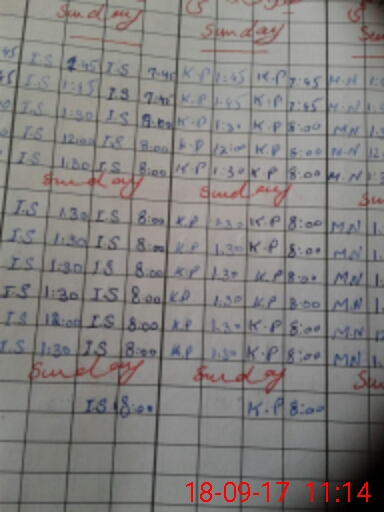 Sunday
Sunday Su
:45 I.S 1:45 I.S 7:45 K.P 1:45 K.P 7:45 M.N 1:
45 I.S 1:45 I.S 7:45 K.P 1:45 K.P 7:45 M.N
I.S 1:30 I.S 8:00 K.P 1:30 K.P 8:00 M.N 1:
I.S 12:00 I.S 8:00 K.P 12:00 K.P 8:00 M.N 12
I.S 1:30 I.S 8:00 K.P 1:30 K.P 8:00 M.N 1:3
Sunday Sunday Su
I.S 1:30 I.S 8:00 K.P 1:30 K.P 8:00 M.N 1:
I.S 1:30 I.S 8:00 K.P 1:30 K.P 8:00 M.N 1:
I.S 1:30 I.S 8:00 K.P 1:30 K.P 8:00 M.N 1:
I.S 1:30 I.S 8:00 K.P 1:30 K.P 8:00 M.N 1:
I.S 12:00 I.S 8:00 K.P 1:30 K.P 8:00 M.N
I.S 1:30 I.S 8:00 K.P 1:30 K.P 8:00 M.N 1:
Sunday Sunday Su
I.S 8:00 K.P 8:00
18-09-17 11:14